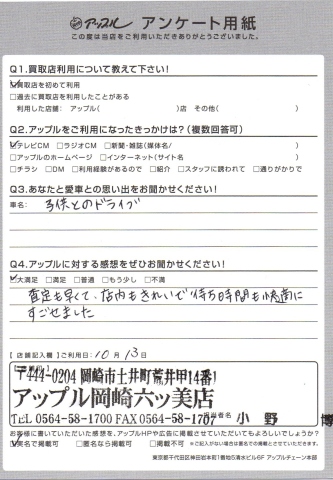 アップル アンケート用紙
この度は当店をご利用いただきありがとうございました。
Q1.買取店利用について教えて下さい!
買取店を初めて利用
□過去に買取店を利用したことがある
利用した店舗: アップル( )店 その他( )
Q2.アップルをご利用になったきっかけは?(複数回答可)
テレビCM □ラジオCM □新聞・雑誌(媒体名/ )
□アップルのホームページ □インターネット(サイト名 )
□チラシ □DM □利用経験があるので □紹介 □スタッフに誘われて □通りがかりで
Q3.あなたと愛車との思い出をお聞かせください!
車名: 子供とのドライブ
Q4.アップルに対する感想をぜひお聞かせください!
大満足 □満足 □普通 □もう少し □不満
査定も早くて、店内もきれいで待ち時間も快適に
すごせました
【店舗記入欄】ご利用日: 10月13日
〒444-0204 岡崎市土井町荒井甲14番1
アップル岡崎六ッ美店
TEL 0564-58-1700 FAX 0564-58-1707 担当者名 小野 博
お客様に書いていただいた感想を、アップルHPや広告に掲載させていただいてもよろしいでしょうか?
実名で掲載可 □匿名なら掲載可 □掲載不可 ※ご記入がない場合は匿名での掲載とさせていただきます。
東京都千代田区神田岩本町1番地6清水ビル6F アップルチェーン本部